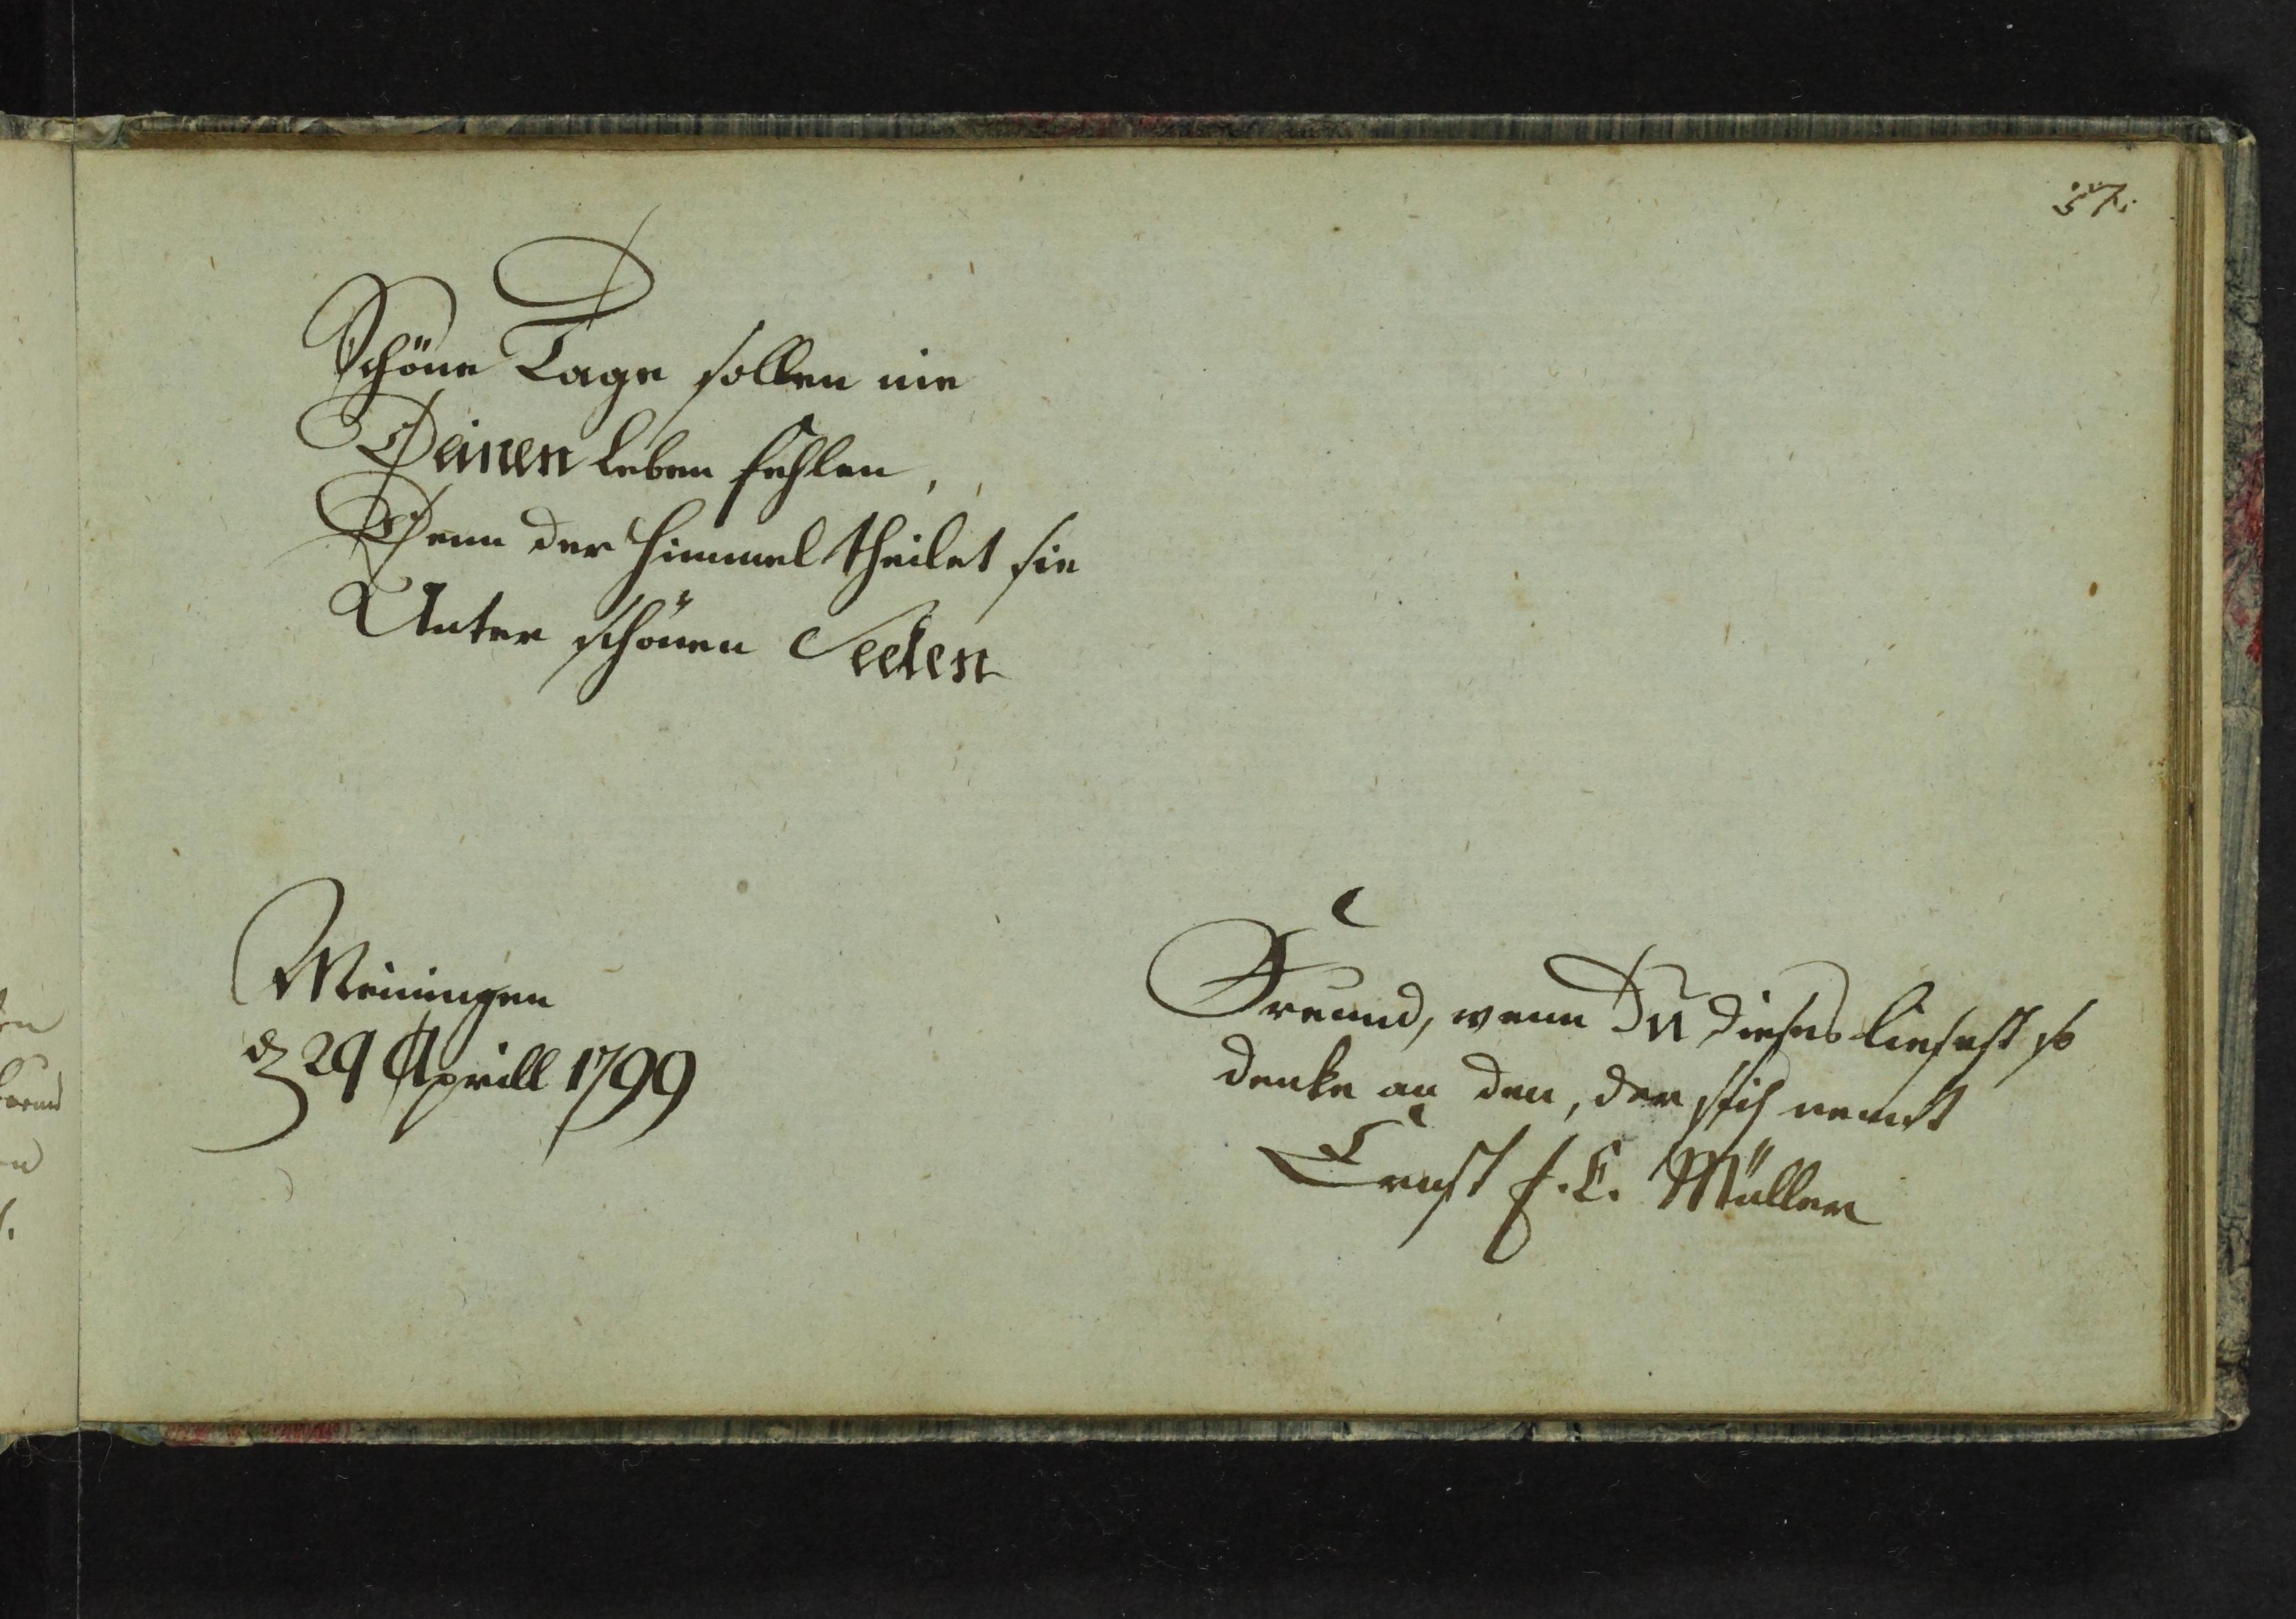 57.
Schöne Tage sollen nie
Deinen Leben fehlen,
Denn der Himmel theilet sie
Unter schönen Seelen
Meiningen
d 29 Aprill 1799
Freund, wenn Du dieses liesest so
denke an den, der sich nennt
Ernst f. C. Müller